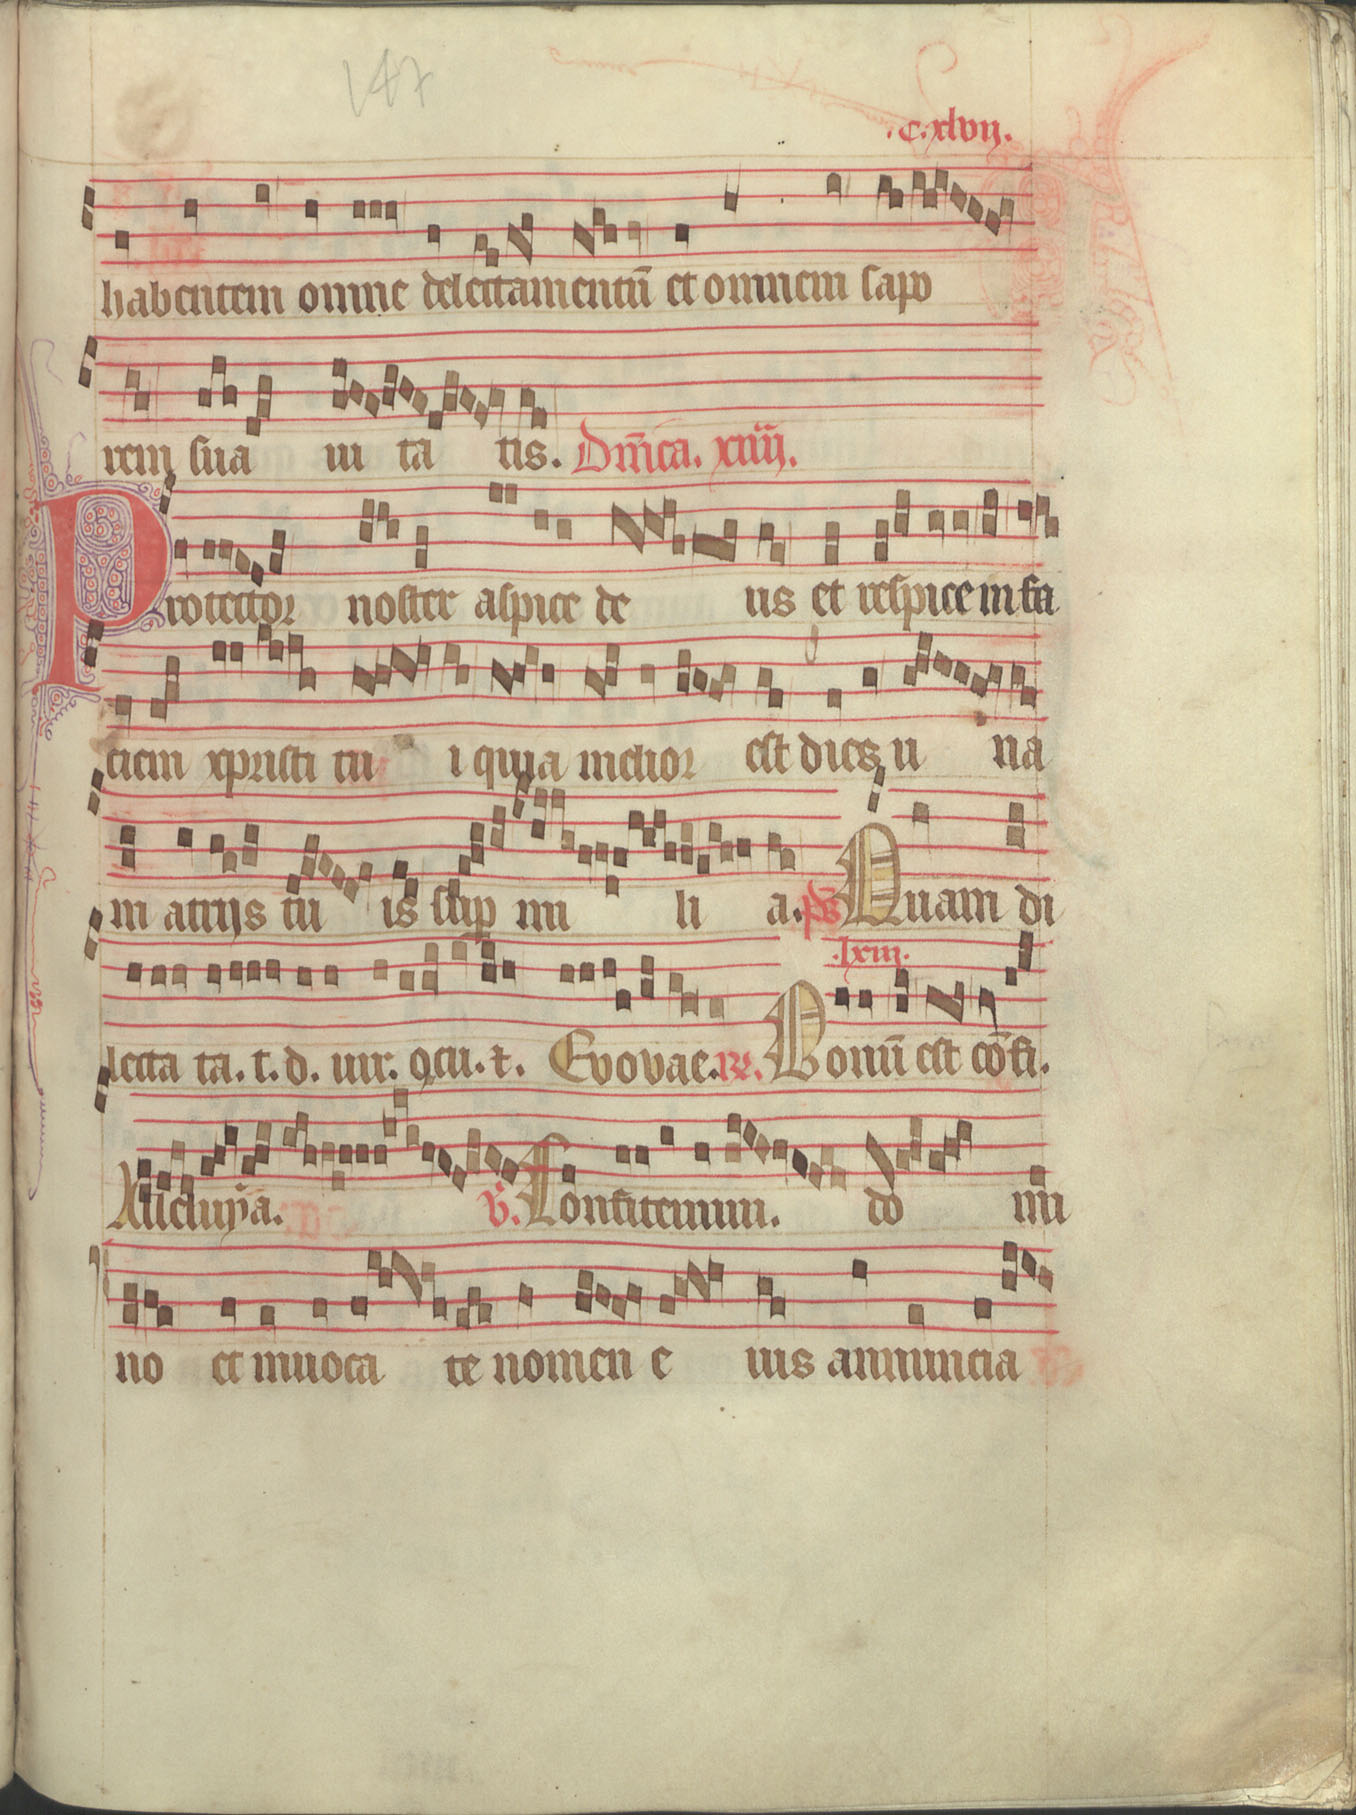 147
.c.xlvij.
habentem omne delectamentū et omnem sapo
rem sua ui ta tis. Dn̄ica. xiiij.
Protector noster aspice de us et respice in fa
ciem xpristi tu i quia melior est dies u na
in atrijs tu is sup mi li a. ps Quam di
lecta ta. t. d. uir. ꝯcu. ⁊. Evovae. R. Bonū est cōfi. .lxiii.
Alleluya. V. Confitemini. do mi
no et inuoca te nomen e ius annuncia